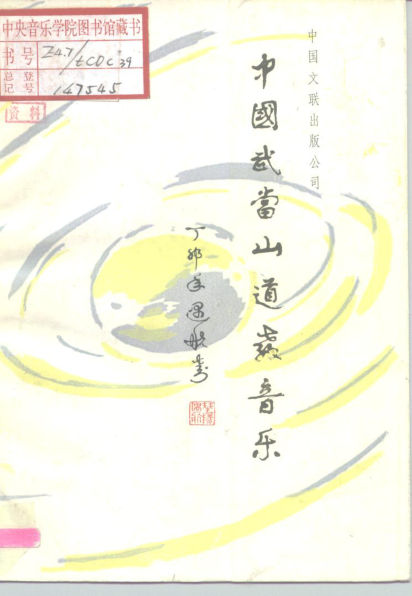 中央音乐学院图书馆藏书
书号 Z4.7/tCDC 39
总登记号 147545
资料
中国文联出版公司
中國武當山道教音乐